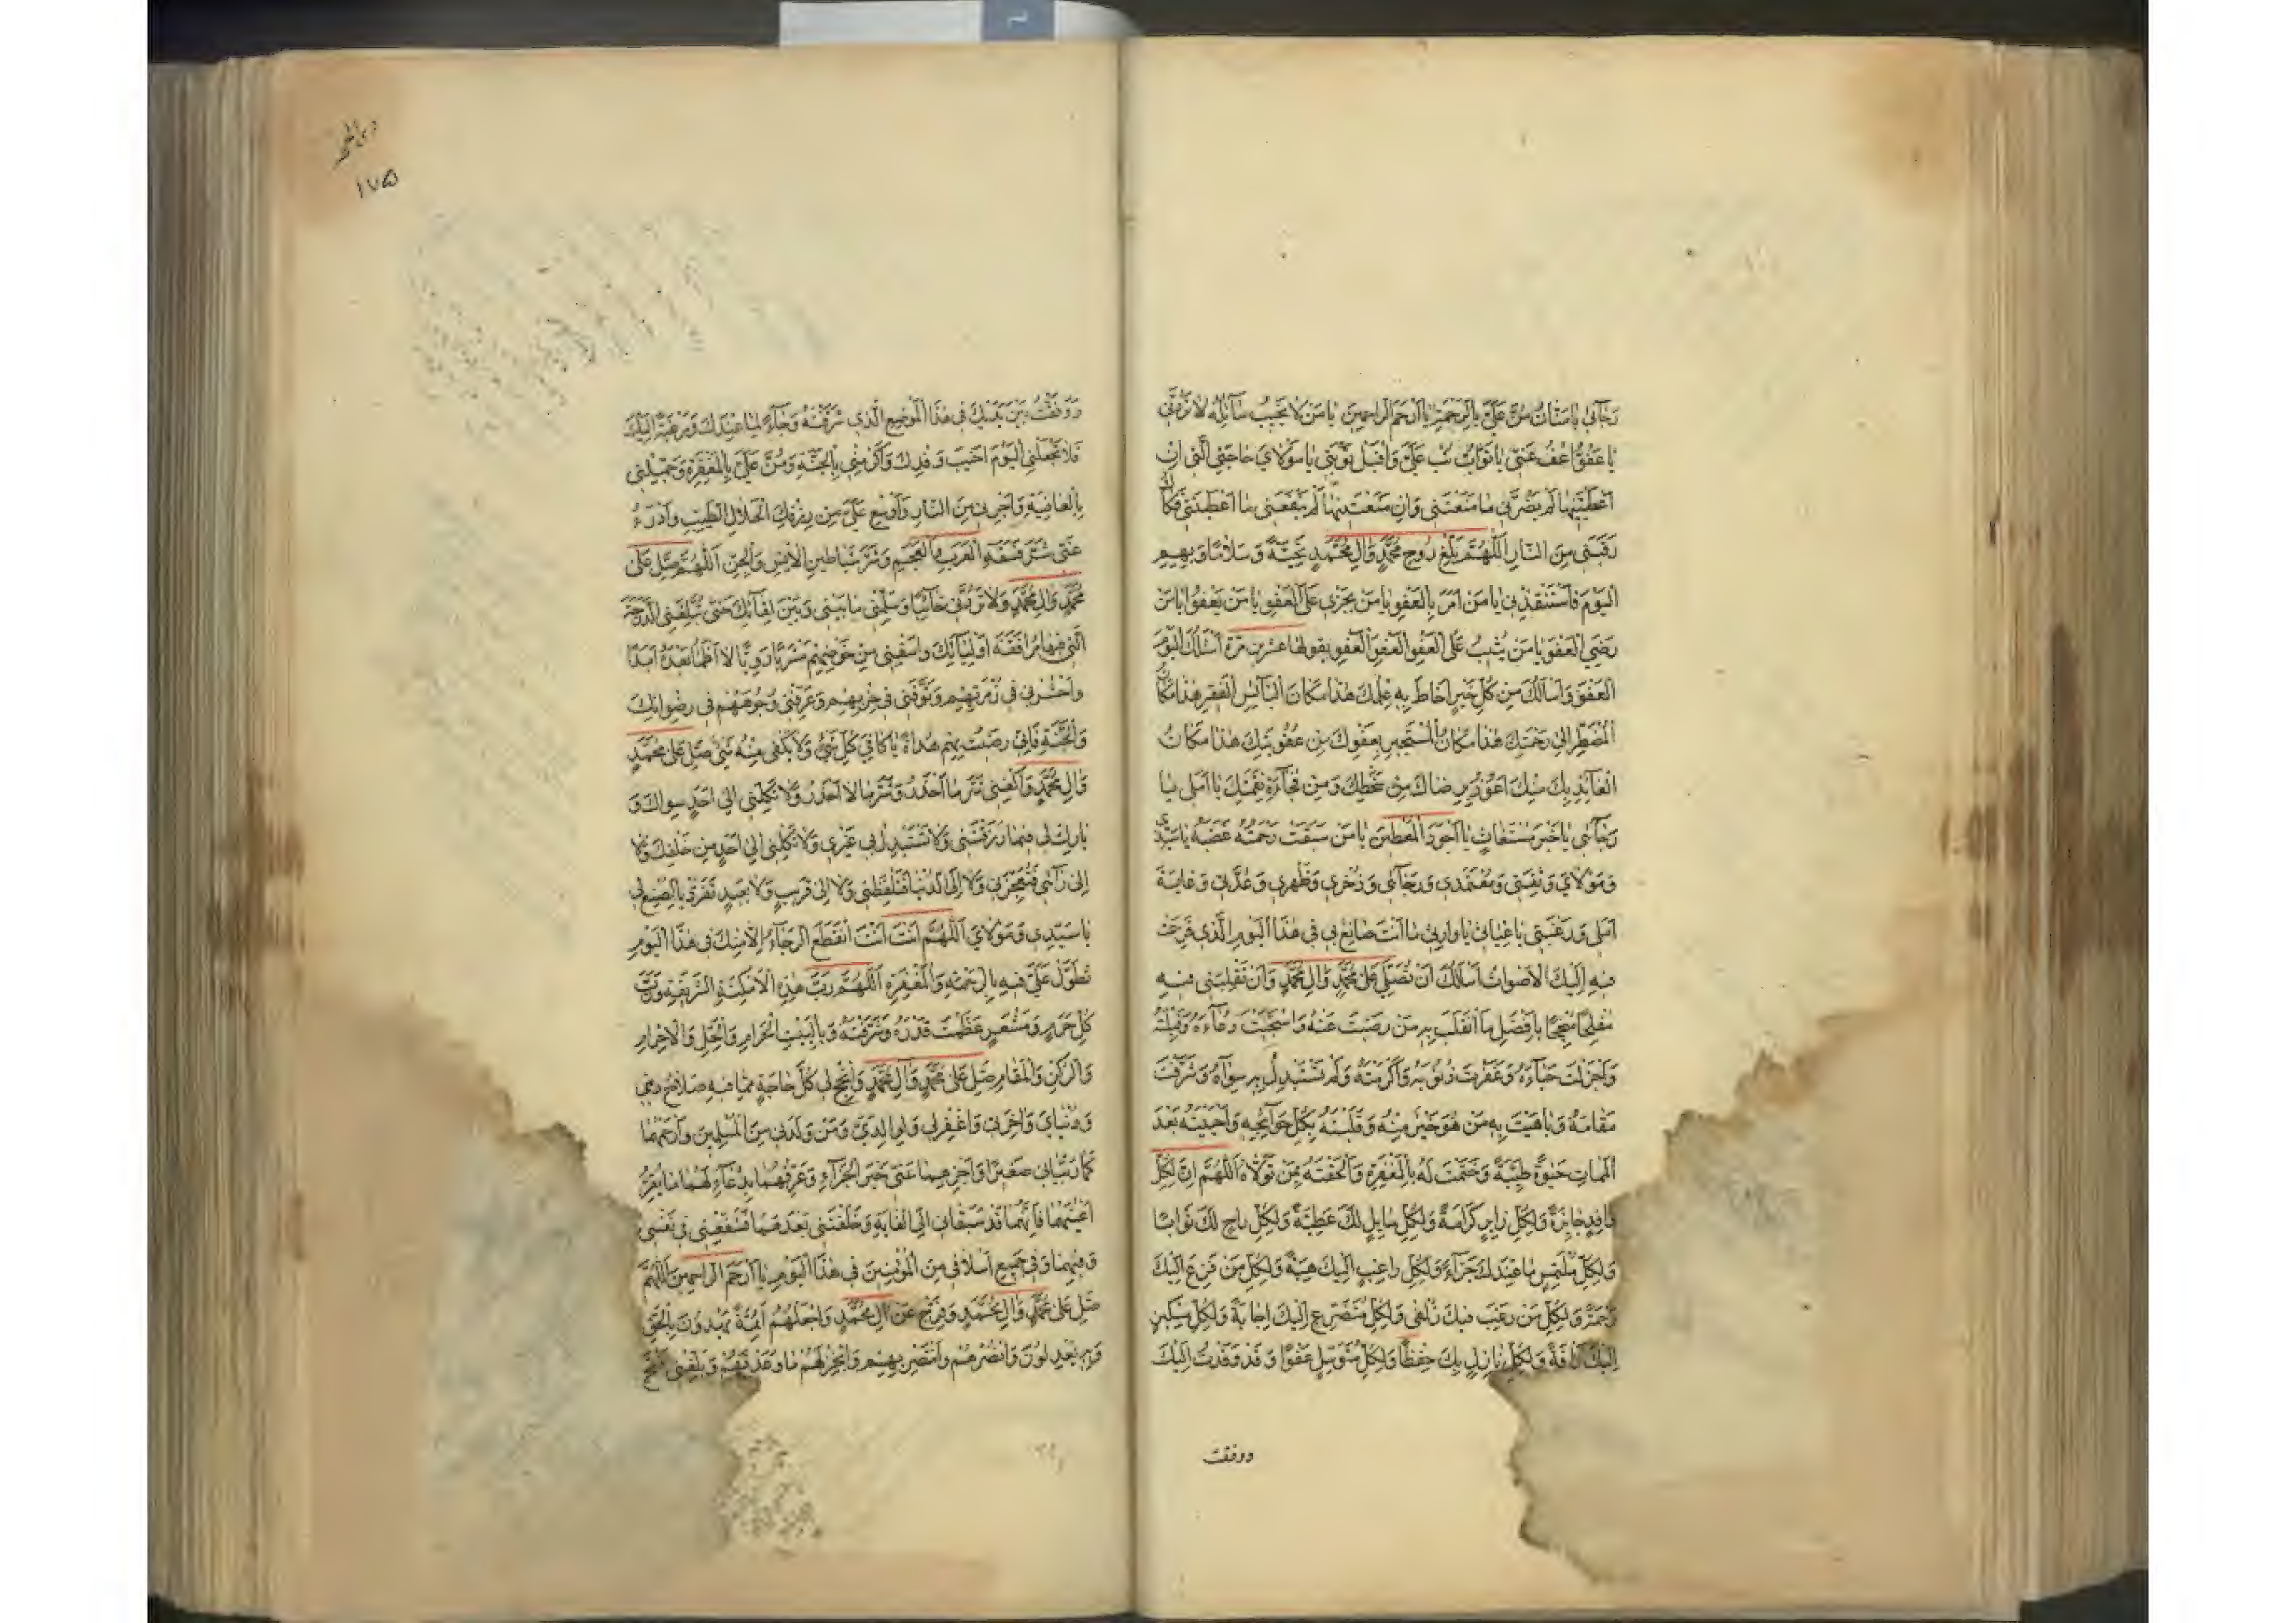 رَجَائي يا مَنّانُ مُنَّ عَلَيَّ بِالرَّحْمَةِ يا اَرْحَمَ الرّاحِمينَ يا مَنْ لا يُخَيِّبُ سآئِلَهُ لا تَرُدَّني
يا عَفُوُّ اعْفُ عَنّي يا تَوّابُ تُبْ عَلَيَّ وَاقْبَلْ تَوْبَتي يا مَوْلايَ حاجَتِي الَّتي اِنْ
اَعْطَيْتَنِيها لَمْ يَضُرَّني ما مَنَعْتَني وَاِنْ مَنَعْتَنِيها لَمْ يَنْفَعْني ما اَعْطَيْتَني فَكاكَ
رَقَبَتي مِنَ النّارِ اَللّهُمَّ بَلِّغْ رُوحَ مُحَمَّدٍ وَالِ مُحَمَّدٍ تَحِيَّةً وَسَلامًا وَبِهِمِ
اليَوْمَ فَاسْتَنْقِذْني يا مَنْ اَمَرَ بِالْعَفْوِ يا مَنْ يَجْزي عَلَى الْعَفْوِ يا مَنْ يَعْفُوا يا مَنْ
رَضِيَ العَفْوَ يا مَنْ يُثيبُ عَلَى العَفْوِ العَفْوَ العَفْوَ يقولها عشرين مرّة اَسْئَلُكَ اليَوْمَ
العَفْوَ وَاَسْأَلُكَ مِنْ كُلِّ خَيْرٍ اَحاطَ بِهِ عِلْمُكَ هذا مَكانُ البآئِسِ الفَقيرِ هذا مَكانُ
المُضْطَرِّ اِلى رَحْمَتِكَ هذا مَكانُ المُسْتَجيرِ بِعَفْوِكَ مِنْ عُقُوبَتِكَ هذا مَكانُ
العآئِذِ بِكَ مِنْكَ اَعُوذُ بِرِضاكَ مِنْ سَخَطِكَ وَمِنْ فُجآءَةِ نِقْمَتِكَ يا اَمَلي يا
رَجآئي يا خَيْرَ مُسْتَغاثٍ يا اَجْوَدَ المُعْطينَ يا مَنْ سَبَقَتْ رَحْمَتُهُ غَضَبَهُ يا سَيِّدي
وَمَوْلايَ وَثِقَتي وَمُعْتَمَدي وَرَجآئي وَذُخْري وَظَهْري وَعُدَّتي وَغايَةَ
اَمَلي وَرَغْبَتي يا غِياثي يا وارِثي ما اَنْتَ صانِعٌ بي في هذَا اليَوْمِ الَّذي فَزِعَتْ
فيهِ اِلَيْكَ الاَصْواتُ اَسْأَلُكَ اَنْ تُصَلِّيَ عَلى مُحَمَّدٍ وَالِ مُحَمَّدٍ وَاَنْ تَقْلِبَني فيهِ
مُفْلِحًا مُنْجِحًا بِاَفْضَلِ مَا انْقَلَبَ بِهِ مَنْ رَضيتَ عَنْهُ وَاسْتَجَبْتَ دُعآءَهُ وَقَبِلْتَهُ
وَاَجْزَلْتَ حَبآءَهُ وَغَفَرْتَ ذُنُوبَهُ وَاَكْرَمْتَهُ وَلَمْ تَسْتَبْدِلْ بِهِ سِواهُ وَشَرَّفْتَ
مَقامَهُ وَباهَيْتَ بِهِ مَنْ هُوَ خَيْرٌ مِنْهُ وَقَلَبْتَهُ بِكُلِّ حَوآئِجِهِ وَاَحْيَيْتَهُ بَعْدَ
المَماتِ حَيوةً طَيِّبَةً وَخَتَمْتَ لَهُ بِالْمَغْفِرَةِ وَاَلْحَقْتَهُ بِمَنْ تَوَلاّهُ اَللّهُمَّ اِنَّ لِكُلِّ
وافِدٍ جائِزَةً وَلِكُلِّ زايِرٍ كَرامَةً وَلِكُلِّ سايِلٍ لَكَ عَطِيَّةً وَلِكُلِّ راجٍ لَكَ ثَوابًا
وَلِكُلِّ مُلْتَمِسٍ ما عِنْدَكَ جَزآءً وَلِكُلِّ راغِبٍ اِلَيْكَ هِبَةً وَلِكُلِّ مَنْ فَزِعَ اِلَيْكَ
رَحْمَةً وَلِكُلِّ مَنْ رَغِبَ فيكَ زُلْفى وَلِكُلِّ مُتَضَرِّعٍ اِلَيْكَ اِجابَةً وَلِكُلِّ مِسْكينٍ
اِلَيْكَ رَأْفَةً وَلِكُلِّ نازِلٍ بِكَ حِفْظًا وَلِكُلِّ مُتَوَسِّلٍ عَفْوًا وَقَدْ وَفَدْتُ اِلَيْكَ
ووقفت
دعای عرفه
١٧٥
وَوَقَفْتُ بَيْنَ يَدَيْكَ في هذَا الْمَوْضِعِ الَّذي شَرَّفْتَهُ رَجآءً لِما عِنْدَكَ وَرَغْبَةً اِلَيْكَ
فَلا تَجْعَلْنِي اليَوْمَ اَخْيَبَ وَفْدِكَ وَاَكْرِمْني بِالْجَنَّةِ وَمُنَّ عَلَيَّ بِالْمَغْفِرَةِ وَجَمِّلْني
بِالْعافِيَةِ وَاَجِرْني مِنَ النّارِ وَاَوْسِعْ عَلَيَّ مِنْ رِزْقِكَ الحَلالِ الطَّيِّبِ وَادْرَءْ
عَنّي شَرَّ فَسَقَةِ العَرَبِ وَالعَجَمِ وَشَرَّ شَياطينِ الاِنْسِ وَالْجِنِّ اَللّهُمَّ صَلِّ عَلى
مُحَمَّدٍ وَالِ مُحَمَّدٍ وَلا تَرُدَّني خآئِبًا وَسَلِّمْني ما بَيْني وَبَيْنَ لِقآئِكَ حَتّى تُبَلِّغَنِي الدَّرَجَةَ
الَّتي فيها مُرافَقَةُ اَوْلِيآئِكَ وَاسْقِني مِنْ حَوْضِهِمْ مَشْرَبًا رَوِيًّا لا اَظْمَأُ بَعْدَهُ اَبَدًا
وَاحْشُرْني في زُمْرَتِهِمْ وَتَوَفَّني في حِزْبِهِمْ وَعَرِّفْني وُجُوهَهُمْ في رِضْوانِكَ
وَالْجَنَّةِ فَاِنّي رَضيتُ بِهِمْ هُداةً يا كافِيَ كُلِّ شَيْءٍ وَلا يَكْفي مِنْهُ شَيْءٌ صَلِّ عَلى مُحَمَّدٍ
وَالِ مُحَمَّدٍ وَاكْفِني شَرَّ ما اَحْذَرُ وَشَرَّ ما لا اَحْذَرُ وَلا تَكِلْني اِلى اَحَدٍ سِواكَ وَ
بارِكْ لي فيما رَزَقْتَني وَلا تَسْتَبْدِلْ بي غَيْري وَلا تَكِلْني اِلى اَحَدٍ مِنْ خَلْقِكَ وَلا
اِلى رَأْيي فَتُعْجِزَني وَلا اِلَى الدُّنْيا فَتَلْفِظَني وَلا اِلى قَريبٍ وَلا بَعيدٍ تَفَرَّدْ بِالصُّنْعِ لي
يا سَيِّدي وَمَوْلايَ اَللّهُمَّ اَنْتَ اَنْتَ انْقَطَعَ الرَّجآءُ اِلاّ مِنْكَ في هذَا اليَوْمِ
تَطَوَّلْ عَلَيَّ فيهِ بِالرَّحْمَةِ وَالْمَغْفِرَةِ اَللّهُمَّ رَبَّ هذِهِ الاَمْكِنَةِ الشَّريفَةِ وَرَبَّ
كُلِّ حَرَمٍ وَمَشْعَرٍ عَظَّمْتَ قَدْرَهُ وَشَرَّفْتَهُ وَبِالْبَيْتِ الحَرامِ وَالْحِلِّ وَالاِحْرامِ
وَالرُّكْنِ وَالْمَقامِ صَلِّ عَلى مُحَمَّدٍ وَالِ مُحَمَّدٍ وَاَنْجِحْ لي كُلَّ حاجَةٍ مِمّا فيهِ صَلاحُ ديني
وَدُنْيايَ وَاخِرَتي وَاغْفِرْ لي وَلِوالِدَيَّ وَمَنْ وَلَدَني مِنَ المُسْلِمينَ وَارْحَمْهُما
كَما رَبَّياني صَغيرًا وَاجْزِهِما عَنّي خَيْرَ الجَزآءِ وَعَرِّفْهُما بِدُعآئي لَهُما ما يُقِرُّ
اَعْيُنَهُما فَاِنَّهُما قَدْ سَبَقاني اِلَى الغايَةِ وَخَلَّفْتَني بَعْدَهُما فَشَفِّعْني في نَفْسي
وَفيهِما وَفي جَميعِ اَسْلافي مِنَ المُؤْمِنينَ في هذَا اليَوْمِ يا اَرْحَمَ الرّاحِمينَ اَللّهُمَّ
صَلِّ عَلى مُحَمَّدٍ وَالِ مُحَمَّدٍ وَفَرِّجْ عَنْ الِ مُحَمَّدٍ وَاجْعَلْهُمْ اَئِمَّةً يَهْدُونَ بِالْحَقِّ
وَبِهِ يَعْدِلُونَ وَانْصُرْهُمْ وَانْتَصِرْ بِهِمْ وَاَنْجِزْ لَهُمْ ما وَعَدْتَهُمْ وَبَلِّغْني فَتْحَ